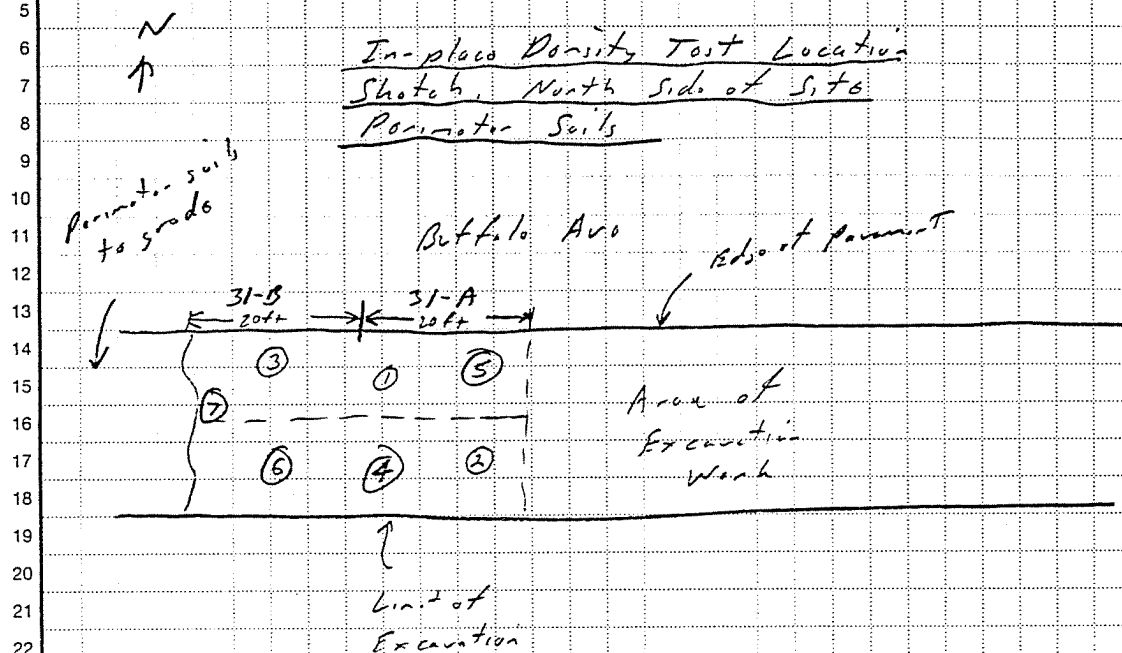 5
6
7
8
9
10
11
12
13
14
15
16
17
18
19
20
21
22
N
In-place Density Test Location
Sketch, North Side of Site
Perimeter Soils
Perimeter soils
to grade
Buffalo Ave
Edge of Pavement
31-B
20ft
31-A
20ft
3
1
5
7
6
4
2
Area of
Excavation
Work
Limit of
Excavation